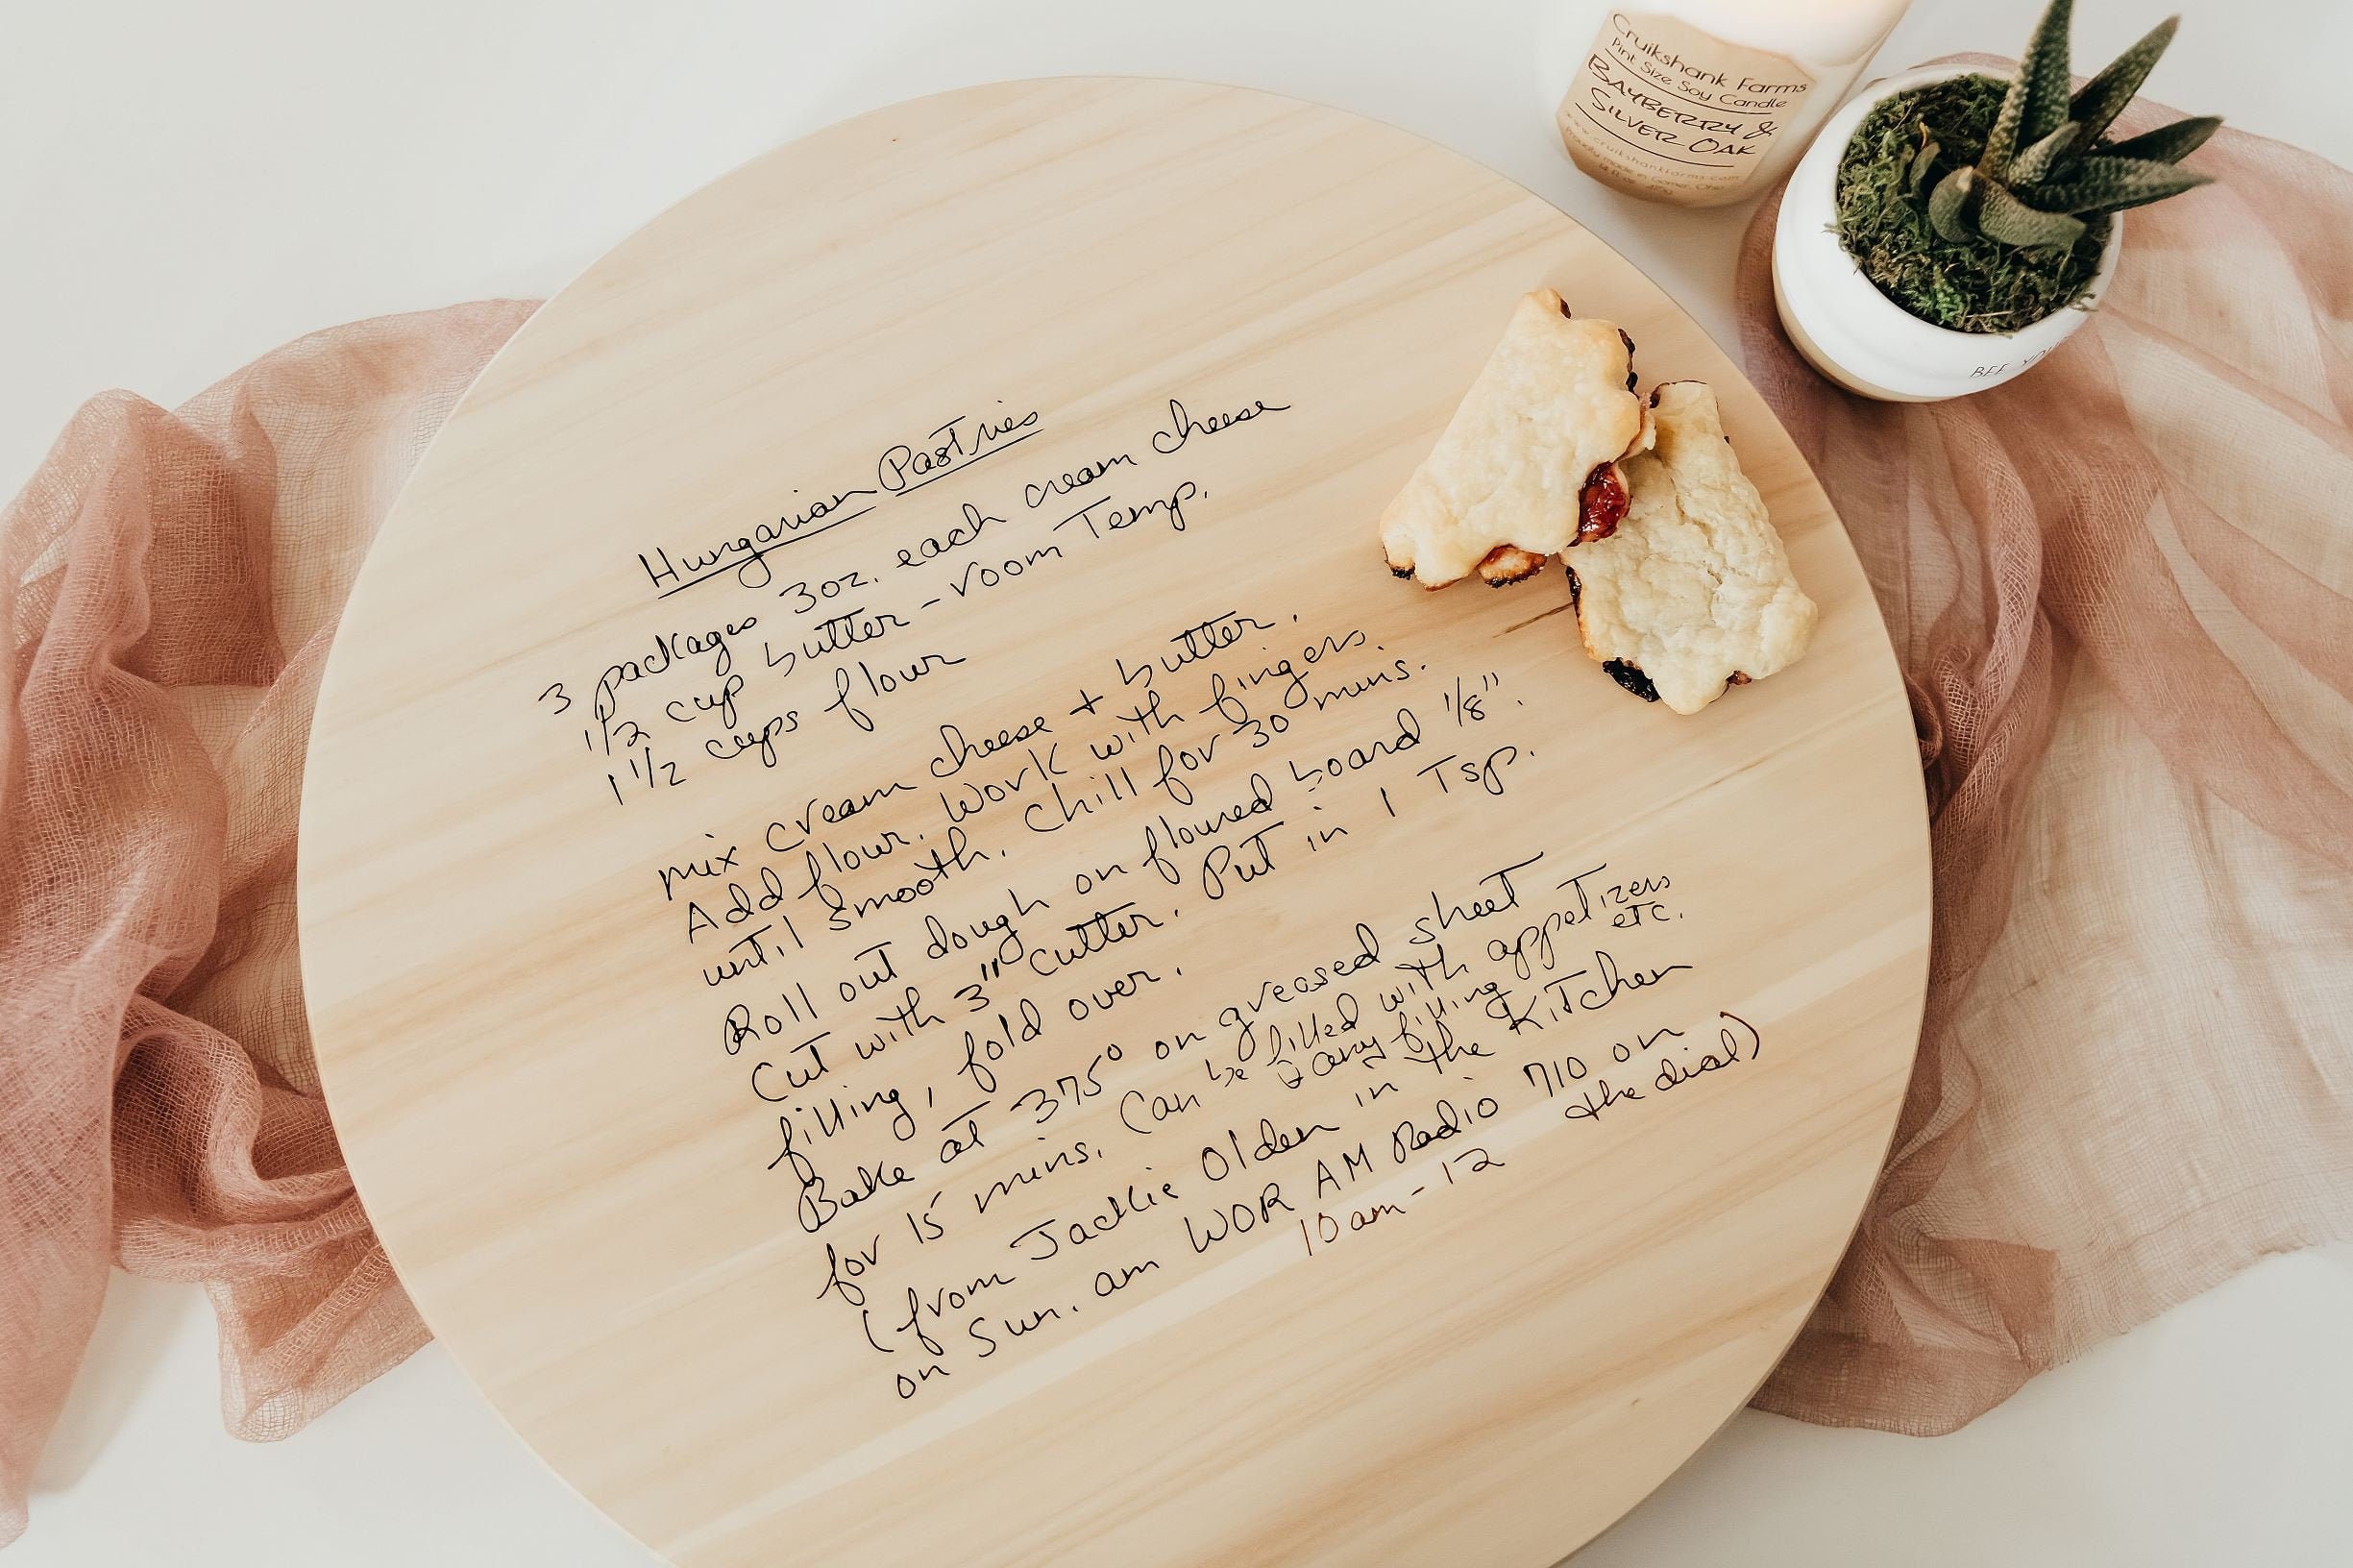 Cruikshank Farms
Pint Size Soy Candle
BAYBERRY &
SILVER OAK
www.cruikshankfarms.com
BEE YOU
Hungarian Pastries
3 packages 3oz. each cream cheese
1/2 cup butter - room Temp.
1 1/2 cups flour
mix cream cheese + butter.
Add flour. Work with fingers
until smooth. Chill for 30 mins.
Roll out dough on floured board 1/8".
Cut with 3" cutter. Put in 1 Tsp.
filling, fold over.
Bake at 375° on greased sheet
for 15 mins. (an be filled with appetizers
any filling etc.
(from Jackie Olden in the Kitchen
on Sun. am WOR AM Radio 710 on
the dial)
10am-12